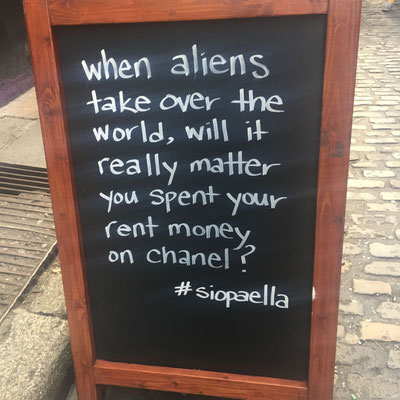 when aliens
take over the
world, will it
really matter
you spent your
rent money
on chanel?
#siopaella